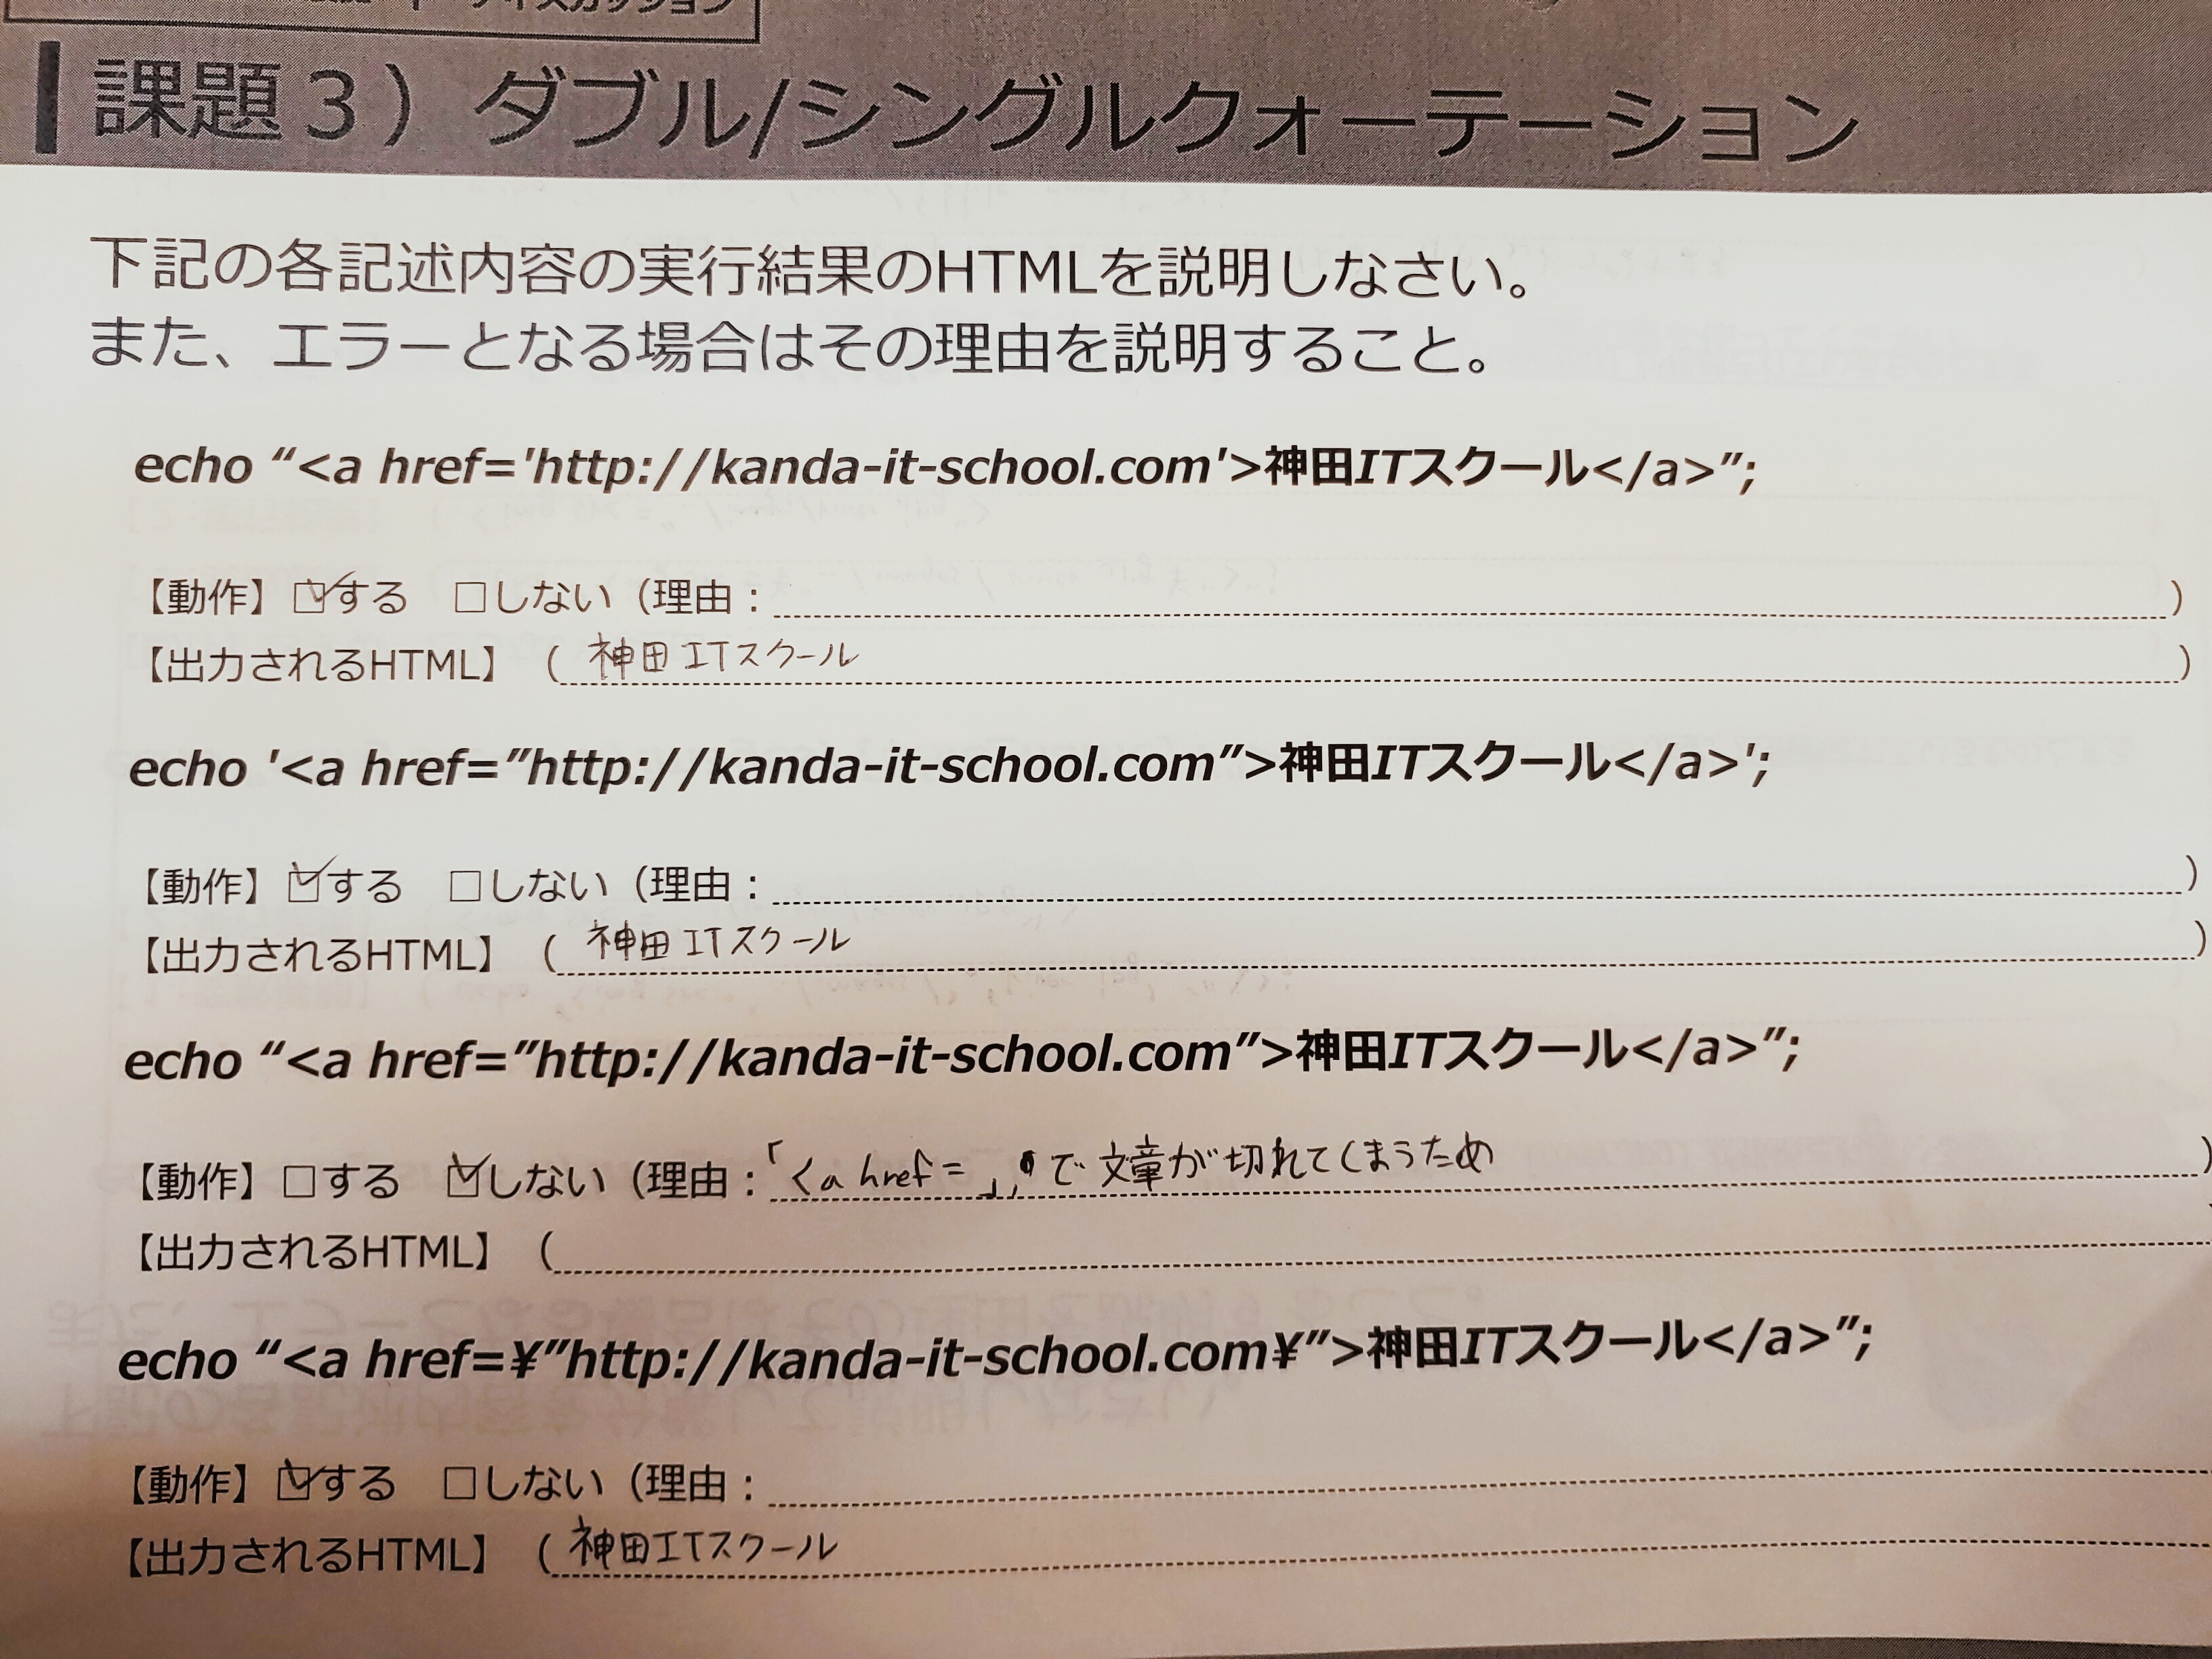 ディスカッション
課題3）ダブル/シングルクォーテーション
下記の各記述内容の実行結果のHTMLを説明しなさい。
また、エラーとなる場合はその理由を説明すること。
echo “<a href='http://kanda-it-school.com'>神田ITスクール</a>”;
【動作】☑する　□しない（理由：　）
【出力されるHTML】（神田ITスクール）
echo '<a href=”http://kanda-it-school.com”>神田ITスクール</a>';
【動作】☑する　□しない（理由：　）
【出力されるHTML】（神田ITスクール）
echo “<a href=”http://kanda-it-school.com”>神田ITスクール</a>”;
【動作】□する　☑しない（理由：「<a href= 」,で文章が切れてしまうため）
【出力されるHTML】（
echo “<a href=¥”http://kanda-it-school.com¥”>神田ITスクール</a>”;
【動作】☑する　□しない（理由：
【出力されるHTML】（神田ITスクール